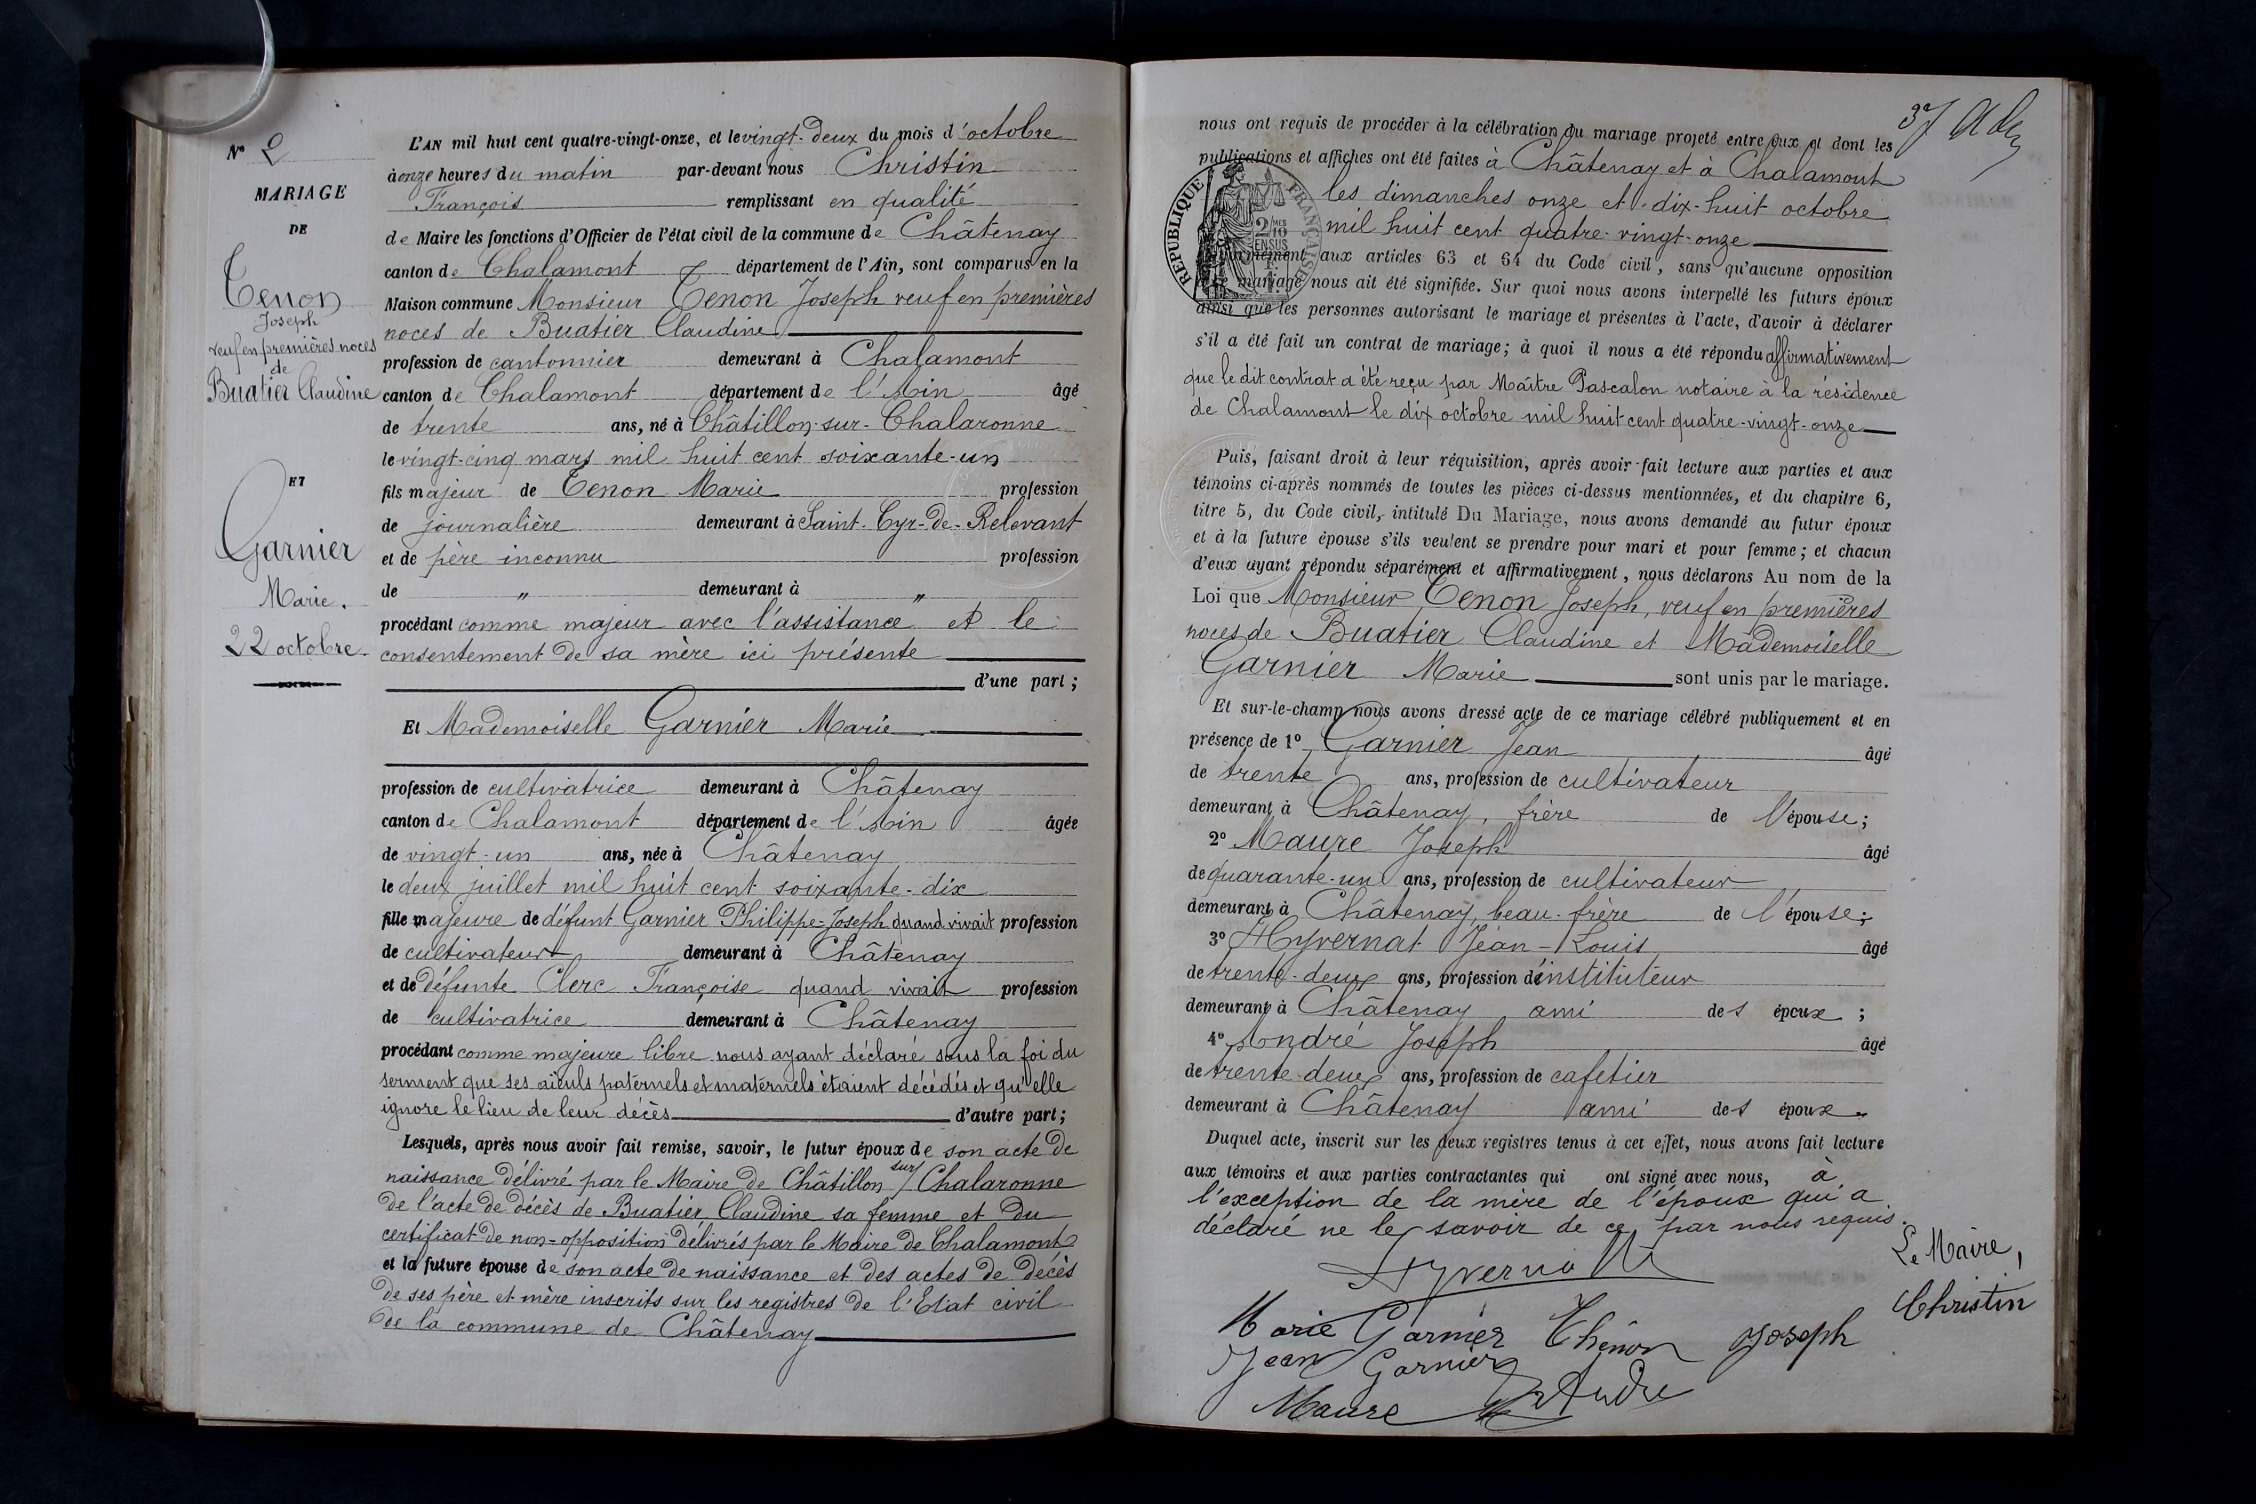 N° 2
MARIAGE
DE
Tenon
Joseph
veuf en premières noces
de
Buatier Claudine
ET
Garnier
Marie.
22 octobre.
L'AN mil huit cent quatre-vingt-onze, et le vingt-deux du mois d'octobre
à onze heures du matin par-devant nous Christin
François remplissant en qualité
de Maire les fonctions d'Officier de l'état civil de la commune de Châtenay
canton de Chalamont département de l'Ain, sont comparus en la
Maison commune Monsieur Tenon Joseph veuf en premières
noces de Buatier Claudine
profession de cantonnier demeurant à Chalamont
canton de Chalamont département de l'Ain âgé
de trente ans, né à Châtillon-sur-Chalaronne
le vingt-cinq mars mil huit cent soixante-un
fils majeur de Tenon Marie profession
de journalière demeurant à Saint-Cyr-de-Relevant
et de père inconnu profession
de " demeurant à "
procédant comme majeur avec l'assistance et le
consentement de sa mère ici présente
d'une part;
Et Mademoiselle Garnier Marie
profession de cultivatrice demeurant à Châtenay
canton de Chalamont département de l'Ain âgée
de vingt-un ans, née à Châtenay
le deux juillet mil huit cent soixante-dix
fille majeure de défunt Garnier Philippe-Joseph quand vivait profession
de cultivateur demeurant à Châtenay
et de défunte Clerc Françoise quand vivait profession
de cultivatrice demeurant à Châtenay
procédant comme majeure libre nous ayant déclaré sous la foi du
serment que ses aïeuls paternels et maternels étaient décédés et qu'elle
ignore le lieu de leur décès d'autre part;
Lesquels, après nous avoir fait remise, savoir, le futur époux de son acte de
naissance délivré par le Maire de Châtillon sur Chalaronne
de l'acte de décès de Buatier Claudine sa femme et du
certificat de non-opposition délivrés par le Maire de Chalamont
et la future épouse de son acte de naissance et des actes de décès
de ses père et mère inscrits sur les registres de l'Etat civil
de la commune de Châtenay
37
nous ont requis de procéder à la célébration du mariage projeté entre eux et dont les
publications et affiches ont été faites à Châtenay et à Chalamont
les dimanches onze et dix-huit octobre
mil huit cent quatre-vingt-onze
RÉPUBLIQUE FRANÇAISE
2/10
EN SUS
aux articles 63 et 64 du Code civil, sans qu'aucune opposition
mariage nous ait été signifiée. Sur quoi nous avons interpellé les futurs époux
ainsi que les personnes autorisant le mariage et présentes à l'acte, d'avoir à déclarer
s'il a été fait un contrat de mariage; à quoi il nous a été répondu affirmativement
que le dit contrat a été reçu par Maître Pascalon notaire à la résidence
de Chalamont le dix octobre mil huit cent quatre-vingt-onze
Puis, faisant droit à leur réquisition, après avoir fait lecture aux parties et aux
témoins ci-après nommés de toutes les pièces ci-dessus mentionnées, et du chapitre 6,
titre 5, du Code civil, intitulé Du Mariage, nous avons demandé au futur époux
et à la future épouse s'ils veulent se prendre pour mari et pour femme; et chacun
d'eux ayant répondu séparément et affirmativement, nous déclarons Au nom de la
Loi que Monsieur Tenon Joseph, veuf en premières
noces de Buatier Claudine et Mademoiselle
Garnier Marie sont unis par le mariage.
Et sur-le-champ nous avons dressé acte de ce mariage célébré publiquement et en
présence de 1° Garnier Jean âgé
de trente ans, profession de cultivateur
demeurant à Châtenay, frère de l'épouse;
2° Maure Joseph âgé
de quarante-un ans, profession de cultivateur
demeurant à Châtenay, beau-frère de l'épouse;
3° Hyvernat Jean-Louis âgé
de trente-deux ans, profession d'instituteur
demeurant à Châtenay ami des époux;
4° André Joseph âgé
de trente-deux ans, profession de cafetier
demeurant à Châtenay ami des époux
Duquel acte, inscrit sur les deux registres tenus à cet effet, nous avons fait lecture
aux témoins et aux parties contractantes qui ont signé avec nous, à
l'exception de la mère de l'époux qui a
déclaré ne le savoir de ce par nous requis.
Le Maire,
Hyvernat
Christin
Marie Garnier Thénon Joseph
Jean Garnier
Maure André